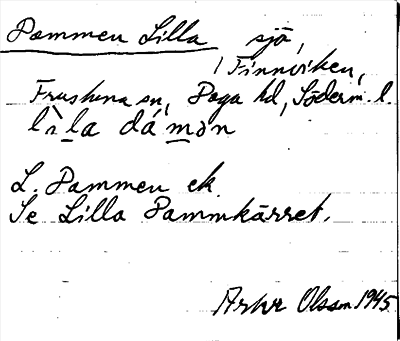 Dammen Lilla sjö,
i Finnviken,
Frustuna sn, Daga hd, Söderm. l.
lìla dámən
L. Dammen ek.
Se Lilla Dammkärret.
Olsson 1945